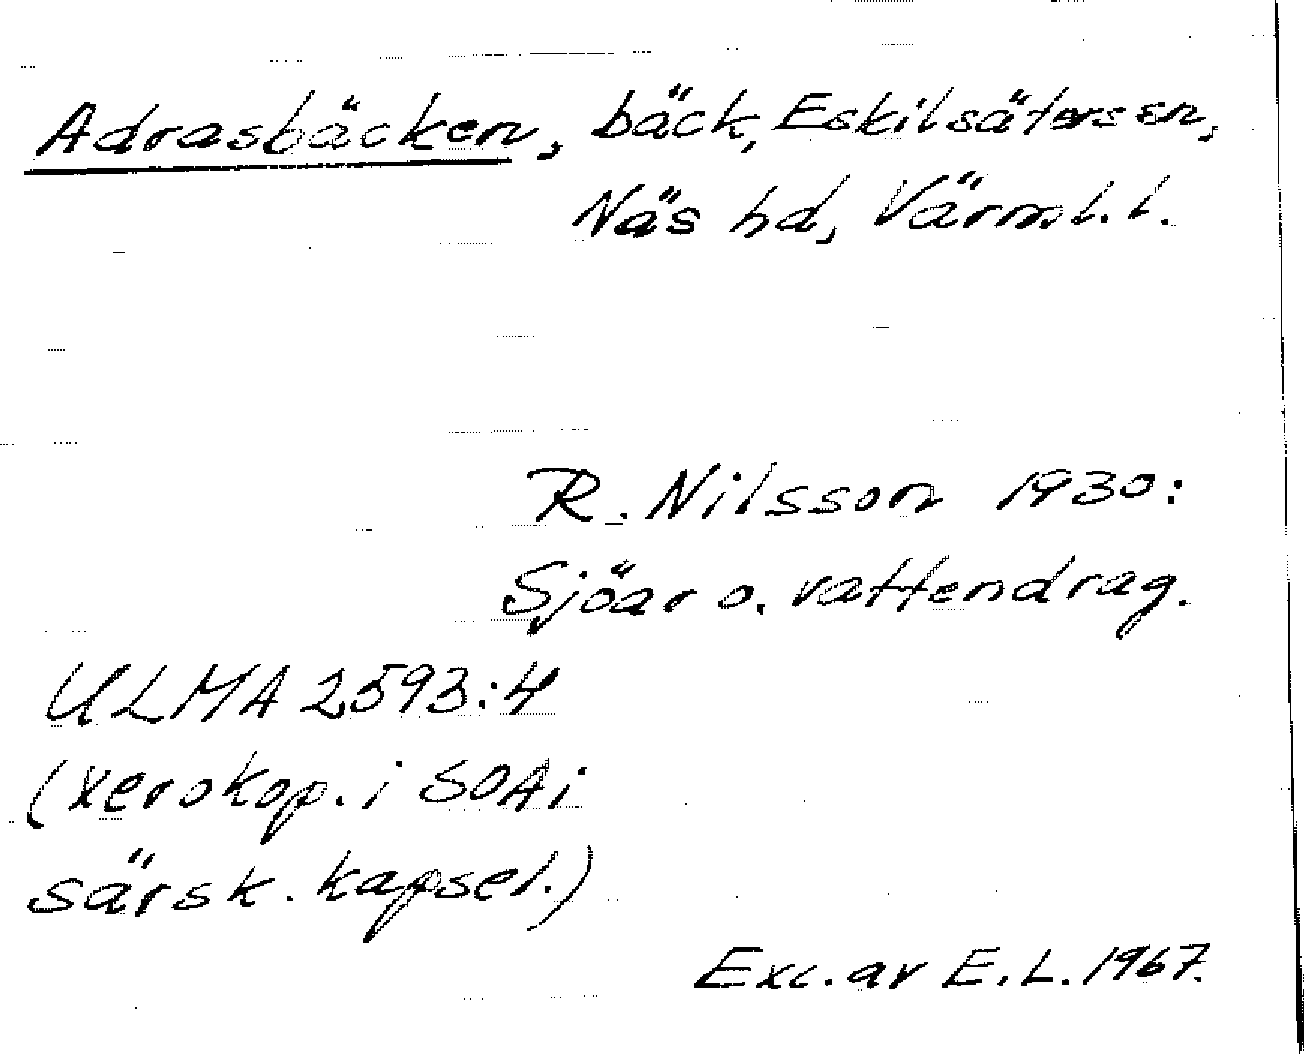 Adrasbäcken, bäck, Eskilsäters sn,
Näs hd, Värml. l.
R. Nilsson 1930:
Sjöar o. vattendrag.
ULMA 2593:4
(xerokop. i SOA i
särsk. kapsel.)
Exc. av E. L. 1967.